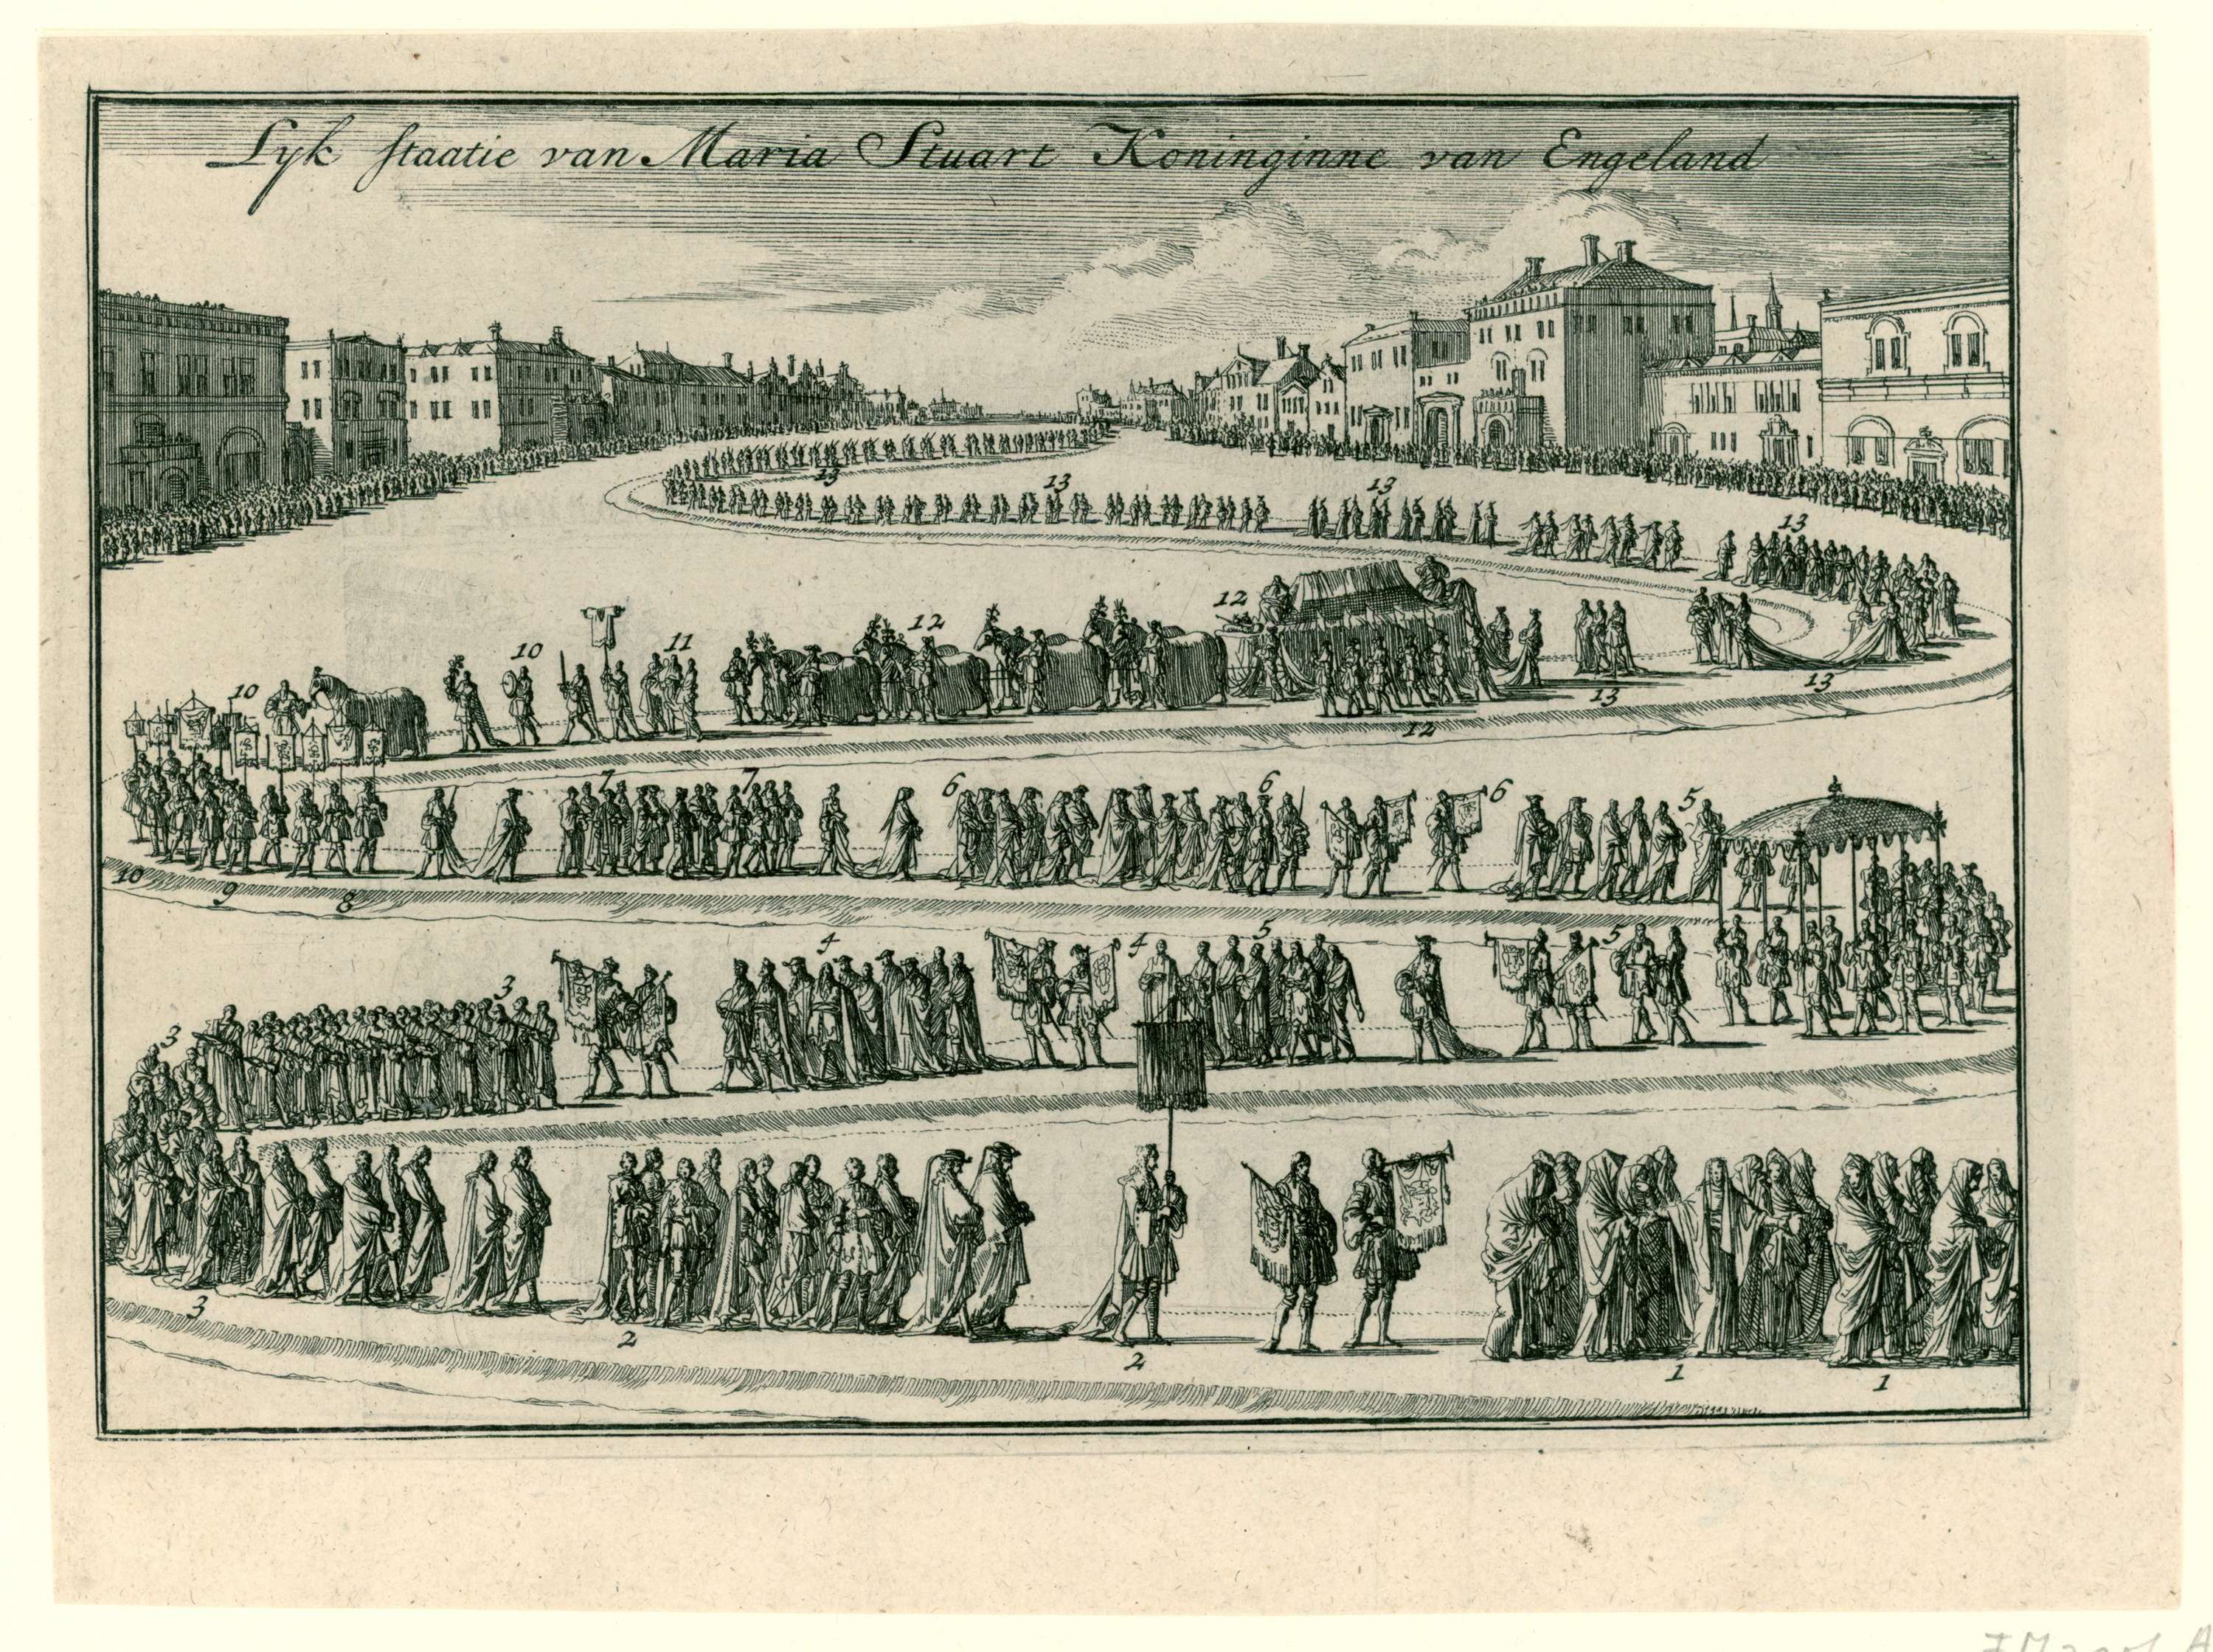 Lyk staatie van Maria Stuart Koninginne van Engeland
13 13 13 13
12
10 11 12
10 13 13
12
7 7 6 6 6 5
10 9 8
4 4 5 5
3
3
3
2 2 1 1